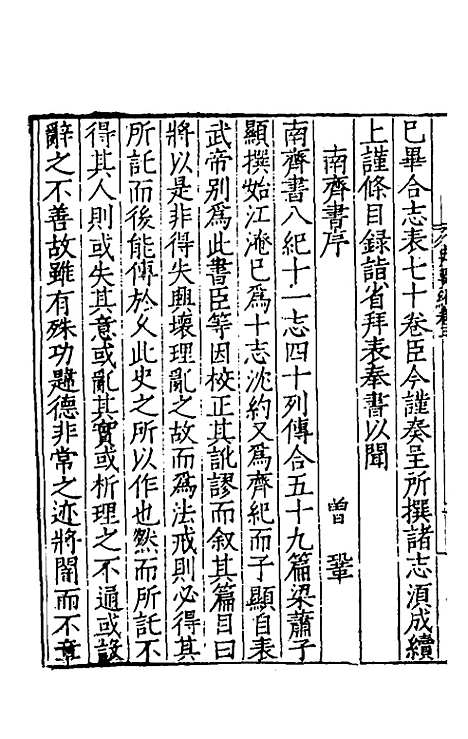 已畢合志表七十卷臣今謹奏呈所撰諸志湏成續
上謹條目録詣省拜表奉書以聞
南齊書序 曽鞏
南齊書八紀十一志四十列傳合五十九篇梁蕭子
顯撰始江淹已爲十志沈約又爲齊紀而子顯自表
武帝别爲此書臣等因校正其訛謬而叙其篇目曰
將以是非得失興壞理亂之故而爲法戒則必得其
所託而後能傳於久此史之所以作也然而所託不
得其人則或失其意或亂其實或析理之不通或設
辭之不善故雖有殊功韙德非常之迹將闇而不章